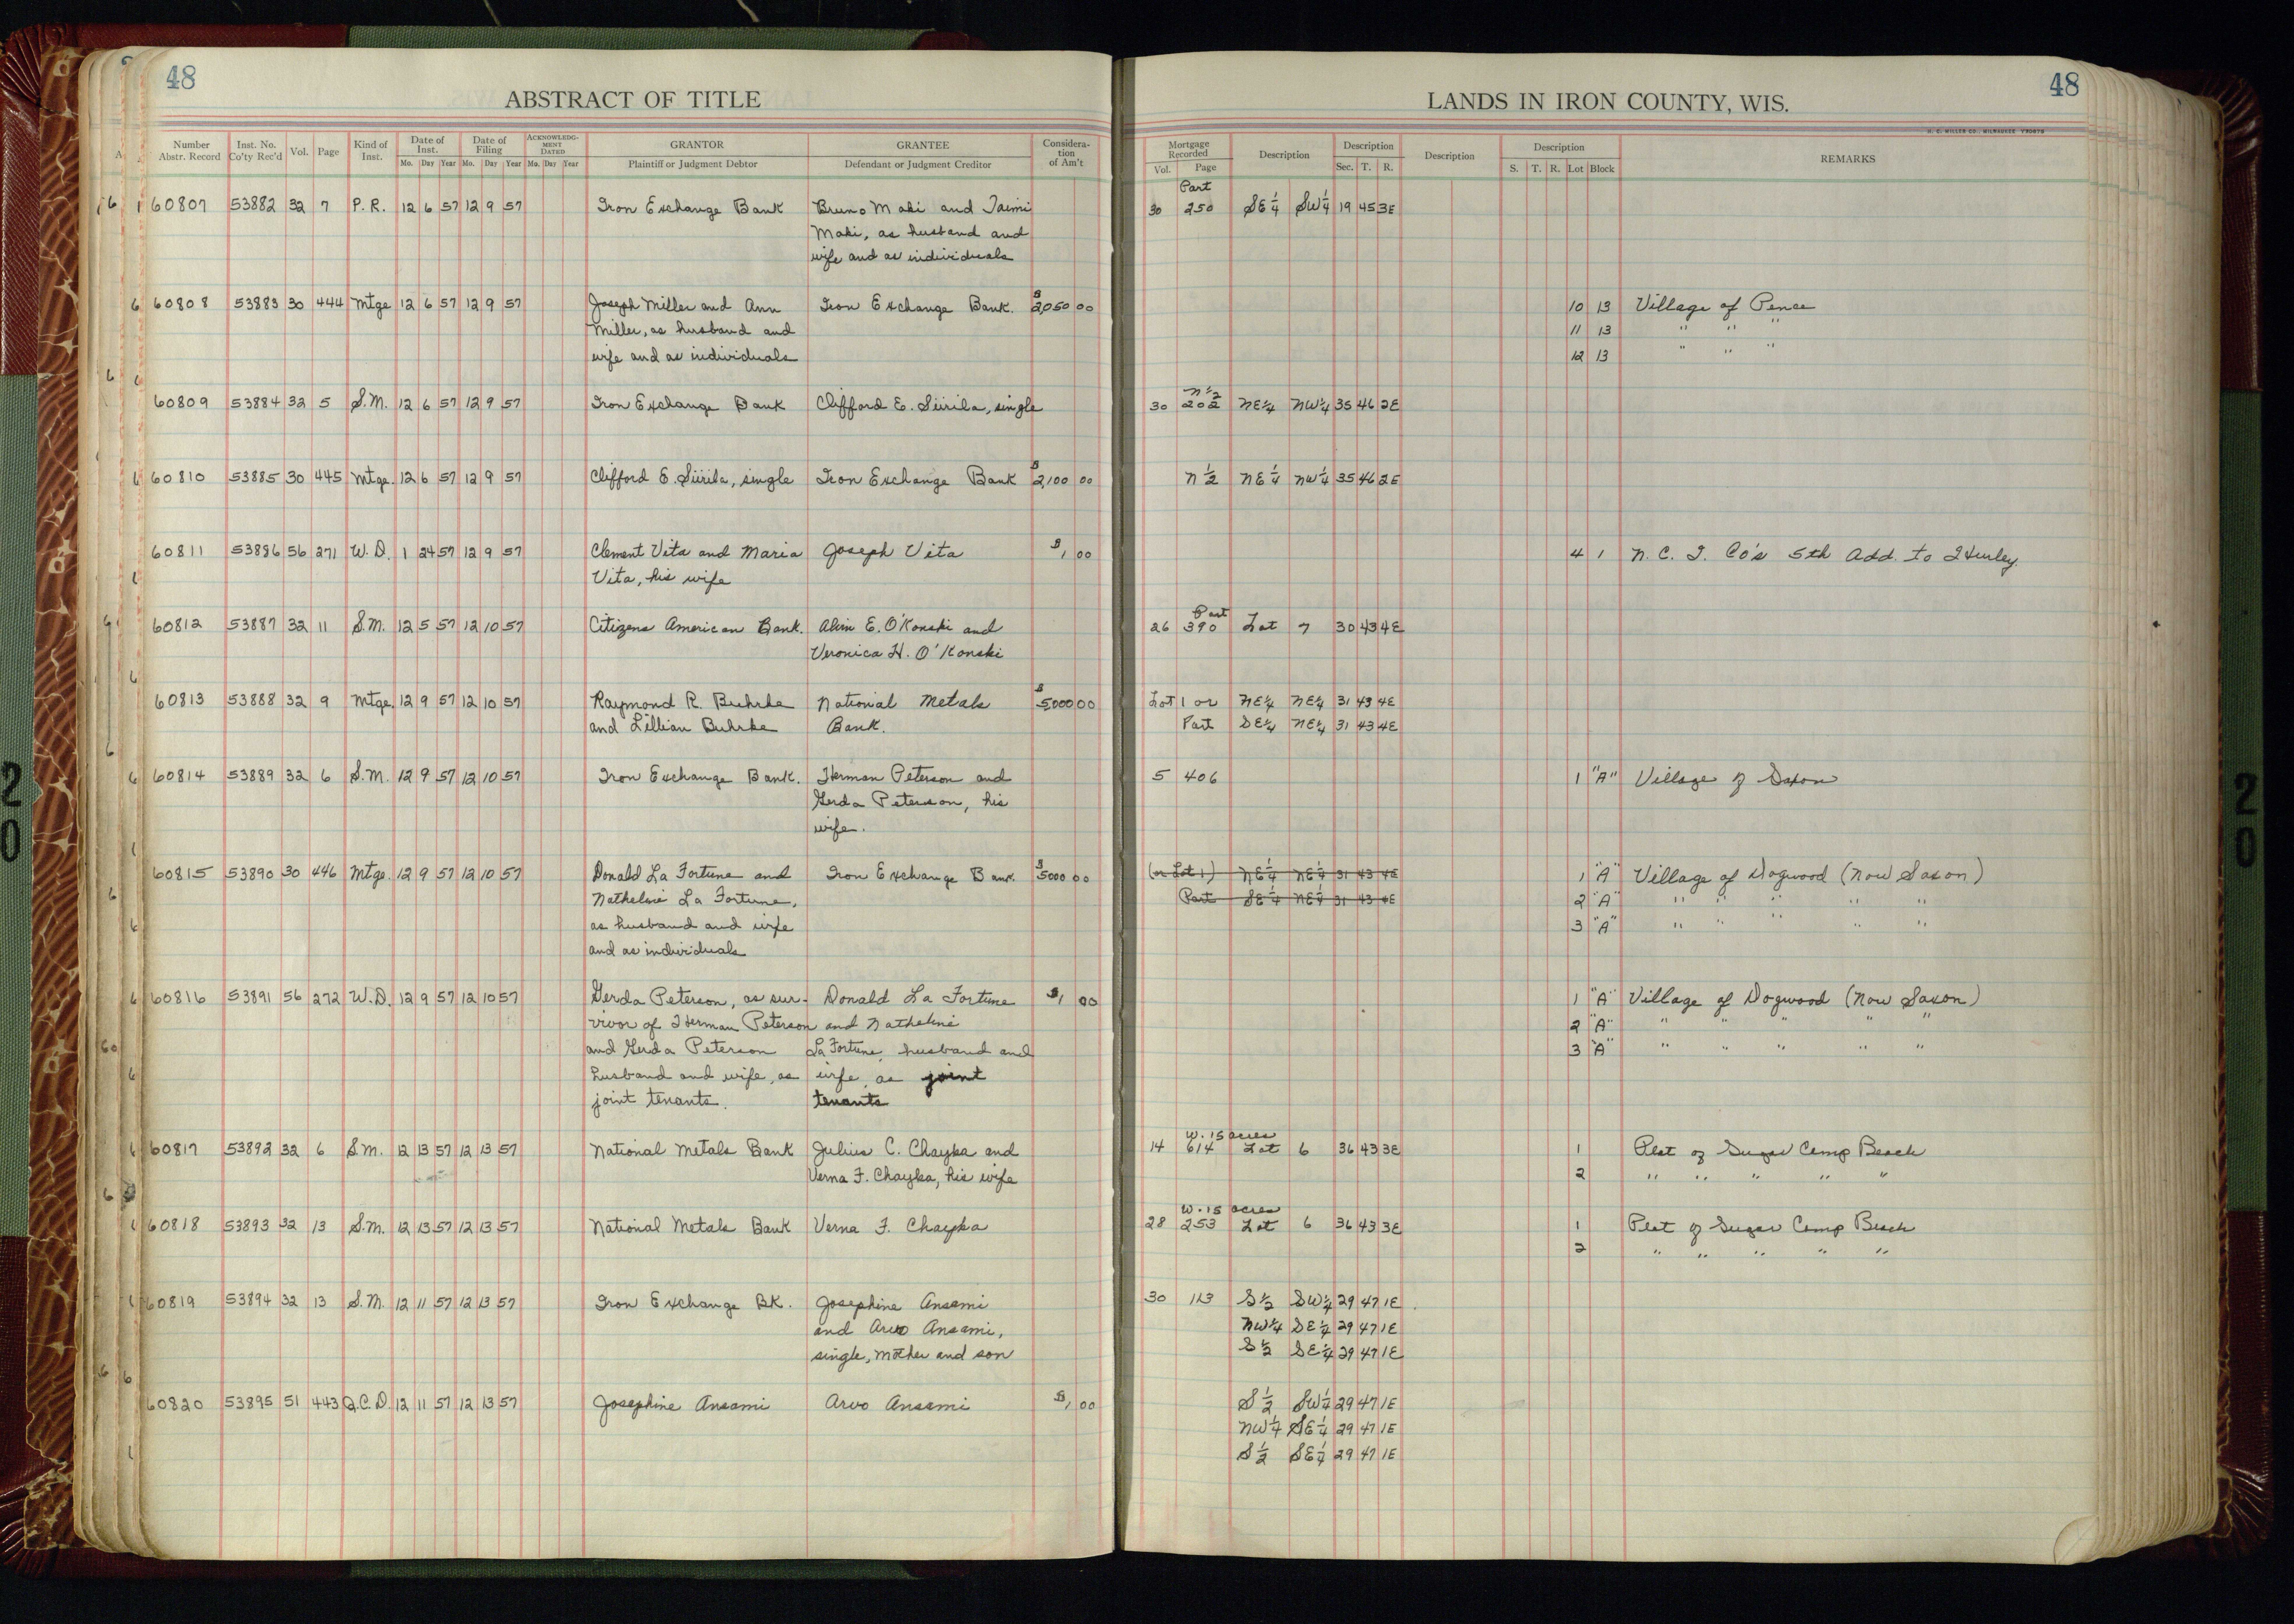 48
ABSTRACT OF TITLE
Number Abstr. Record
Inst. No. Co'ty Rec'd
Vol.
Page
Kind of Inst.
Date of Inst.
Mo. Day Year
Date of Filing
Mo. Day Year
ACKNOWLEDGMENT DATED
Mo. Day Year
GRANTOR
Plaintiff or Judgment Debtor
GRANTEE
Defendant or Judgment Creditor
Consideration of Am't
60807 53882 32 7 P. R. 12 6 57 12 9 57 Iron Exchange Bank Bruno Maki and Taimi
Maki, as husband and
wife and as individuals
60808 53883 30 444 Mtge 12 6 57 12 9 57 Joseph Miller and Ann Iron Exchange Bank. $2,050 00
Miller, as husband and
wife and as individuals
60809 53884 32 5 S.M. 12 6 57 12 9 57 Iron Exchange Bank Clifford E. Siirila, single
60810 53885 30 445 Mtge. 12 6 57 12 9 57 Clifford E. Siirila, single Iron Exchange Bank $2,100 00
60811 53886 56 271 W. D. 1 24 57 12 9 57 Clement Vita and Maria Joseph Vita $1 00
Vita, his wife
60812 53887 32 11 S.M. 12 5 57 12 10 57 Citizens American Bank. Alvin E. O'Konski and
Veronica H. O'Konski
60813 53888 32 9 Mtge. 12 9 57 12 10 57 Raymond R. Buhrke National Metals $5000 00
and Lillian Buhrke Bank.
60814 53889 32 6 S.M. 12 9 57 12 10 57 Iron Exchange Bank. Herman Peterson and
Gerda Peterson, his
wife.
60815 53890 30 446 Mtge. 12 9 57 12 10 57 Donald La Fortune and Iron Exchange Bank. $5000 00
Natheline La Fortune,
as husband and wife
and as individuals
60816 53891 56 272 W.D. 12 9 57 12 10 57 Gerda Peterson, as sur- Donald La Fortune $1 00
vivor of Herman Peterson and Natheline
and Gerda Peterson La Fortune, husband and
husband and wife, as wife, as joint
joint tenants. tenants
60817 53892 32 6 S.M. 12 13 57 12 13 57 National Metals Bank Julius C. Chayka and
Verna F. Chayka, his wife
60818 53893 32 13 S.M. 12 13 57 12 13 57 National Metals Bank Verna F. Chayka
60819 53894 32 13 S.M. 12 11 57 12 13 57 Iron Exchange BK. Josephine Ansami
and Arvo Ansami,
single, mother and son
60820 53895 51 443 Q.C.D. 12 11 57 12 13 57 Josephine Ansami Arvo Ansami $1 00
48
LANDS IN IRON COUNTY, WIS.
H. C. MILLER CO., MILWAUKEE
Mortgage Recorded
Vol. Page
Description
Description
Sec. T. R.
Description
Description
S. T. R. Lot Block
REMARKS
Part
30 250 SE 1/4 SW 1/4 19 45 3E
10 13 Village of Pence
11 13 " " "
12 13 " " "
N 1/2
30 202 NE 1/4 NW 1/4 35 46 2E
N 1/2 NE 1/4 NW 1/4 35 46 2E
4 1 N. C. I. Co's 5th Add. to Hurley.
Part
26 390 Lot 7 30 43 4E
Lot 1 or NE 1/4 NE 1/4 31 43 4E
Part SE 1/4 NE 1/4 31 43 4E
5 406 1 "A" Village of Saxon
(or Lot 1) NE 1/4 NE 1/4 31 43 4E 1 "A" Village of Dogwood (Now Saxon)
Part SE 1/4 NE 1/4 31 43 4E 2 "A" " " " " "
3 "A" " " " " "
1 "A" Village of Dogwood (Now Saxon)
2 "A" " " " " "
3 "A" " " " " "
W. 15 acres
14 614 Lot 6 36 43 3E 1 Plat of Sugar Camp Beach
2 " " " " "
W. 15 acres
28 253 Lot 6 36 43 3E 1 Plat of Sugar Camp Beach
2 " " " " "
30 113 S 1/2 SW 1/4 29 47 1E
NW 1/4 SE 1/4 29 47 1E
S 1/2 SE 1/4 29 47 1E
S 1/2 SW 1/4 29 47 1E
NW 1/4 SE 1/4 29 47 1E
S 1/2 SE 1/4 29 47 1E
20
20